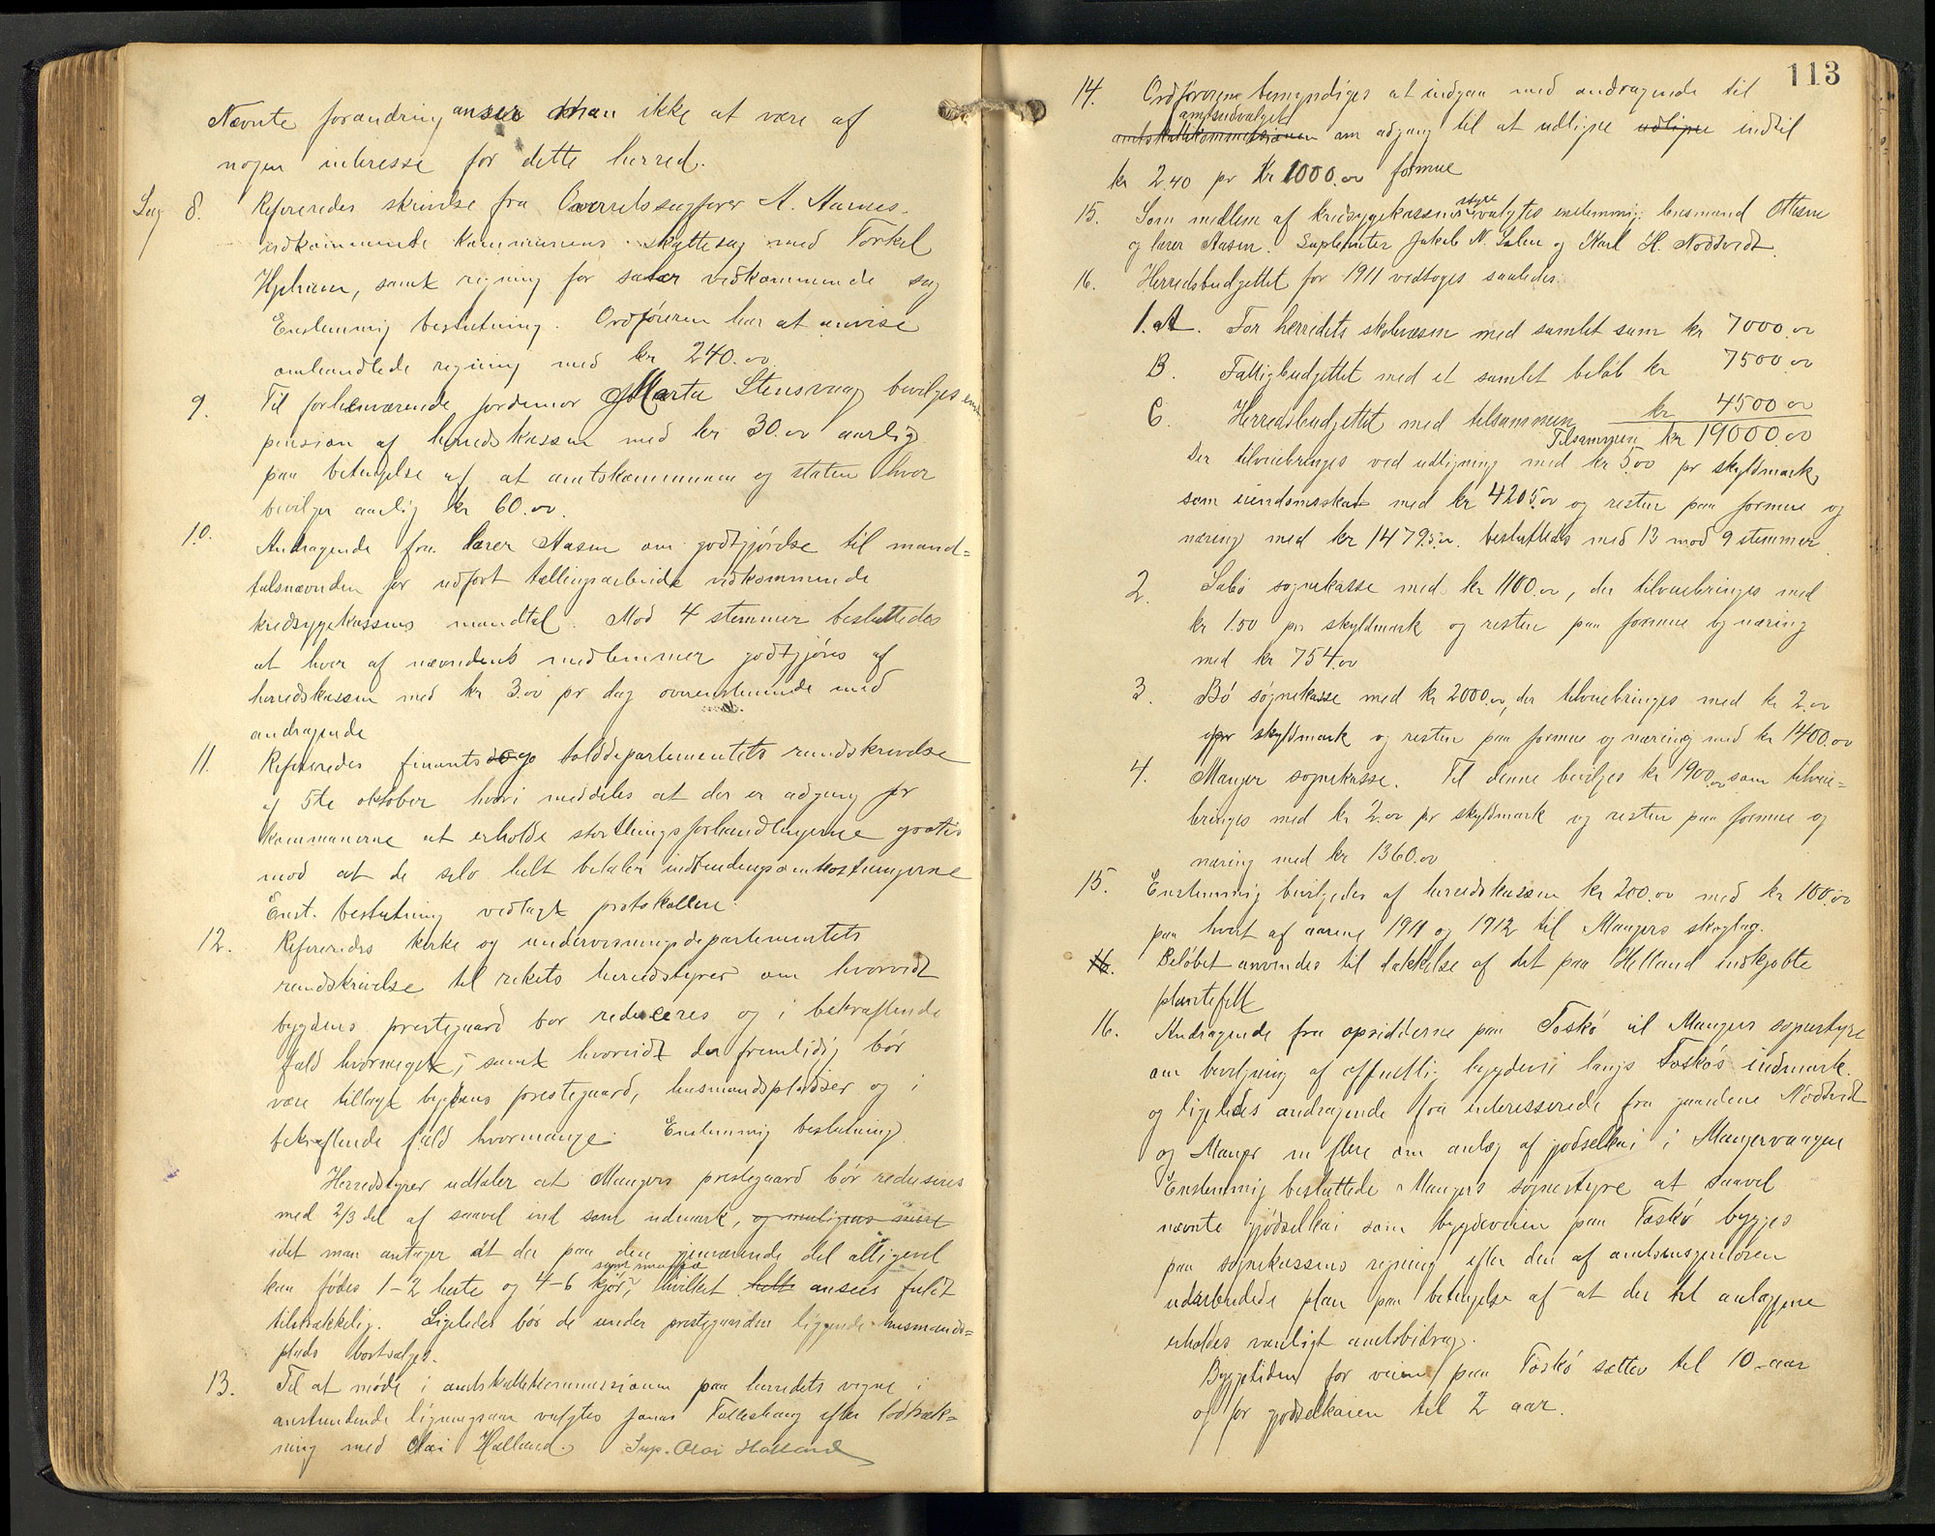 Nævnte forandring anser man ikke at være af
nogen interesse for dette herred.
Sag 8. Refereredes skrivelse fra Overretssagfører A. Aarnes
vedkommende kommunens skattesag med Torkel
samt regning for salær vedkommende sag
Enstemmig beslutning. Ordføreren har at anvise
omhandlede regning med kr 240.00
9. Til forhenværende jordemor Marta Stensvaag bevilges enst
pension af herredskassen med kr 30.00 aarlig
paa betingelse af at amtskommunen og staten hver
bevilger aarlig kr 60.00.
10. Andragende fra lærer Aasen om godtgjørelse til mand-
talsnævnden for udført tællingsarbeide vedkommende
kredssygekassens mandtal. Mod 4 stemmer besluttedes
at hver af nævndens medlemmer godtgjøres af
herredskassen med kr 3.00 pr dag overenstemmende med
andragende
11. Refereredes finants og tolddepartementets rundskrivelse
af 5te oktober hvori meddeles at der er adgang for
kommunerne at erholde storthingsforhandlingerne gratis
mod at de selv helt betaler indbindingsomkostningerne
Enst. beslutning vedlagt protokollen.
12. Refereredes kirke og undervisningsdepartementets
rundskrivelse til rikets herredstyrer om hvorvidt
bygdens prestegaard bør reduceres og i bekræftende
fald hvormeget, samt hvorvidt der fremtidig bør
være tillagt bygdens prestegaard, husmandspladser og i
bekræftende fald hvormange. Enstemmig beslutning
Herredstyret udtaler at Mangers prestegaard bør reduseres
med 2/3 del af saavel ind som udmark, og muligens
idet man antager at der paa den gjenværende del alligevel
kan fødes 1-2 heste og 4-6 kjør, samt smaafæ hvilket helt ansees fuldt
tilstrækkelig. Ligeledes bør de under prestegaarden liggende husmands-
plads bortsælges.
13. Til at møde i amtskattekommissionen paa herredets vegne i
anstundende ligningsaar valgtes Jonas Falleshaug efter lodtræk-
ning med Olai Helland. Sup. Olai Helland
113
14. Ordføreren bemyndiges at indgaa med andragende til
amtsudvalget
amtskattekommissionen om adgang til at udligne udligne indtil
kr 2.40 pr kr 1000.00 formue
15. Som medlem af kredssygekassens styre valgtes enstemmig lensmand Ottesen
og lærer Aasen. Suplenter Jakob N. Sæbø og Karl H. Nordtvedt.
16. Herredsbudgettet for 1911 vedtoges saaledes:
1. A. For herredets skolevæsen med samlet sum kr 7000.00
B. Fattigbudgettet med et samlet beløb kr 7500.00
C. Herredsbudgettet med tilsammen kr 4500.00
Tilsammen kr 19000.00
Der tilveiebringes ved udligning med kr 5.00 pr skyldmark
som eiendomsskat med kr 4205.00 og resten paa formue og
næring med kr 14795.00. besluttedes med 13 mod 9 stemmer
2. Sæbø sognekasse med kr 1100.00, der tilveiebringes med
kr 1.50 pr skyldmark og resten paa formue og næring
med kr 754.00
3. Bø sognekasse med kr 2000.00, der tilveiebringes med kr 2.00
pr skyldmark og resten paa formue og næring med kr 1400.00
4. Manger sognekasse. Til denne bevilges kr 1900.00 som tilveie-
bringes med kr 2.00 pr skyldmark og resten paa formue og
næring med kr 1360.00
15. Enstemmig bevilgedes af herredskassen kr 200.00 med kr 100.00
paa hvert af aarene 1911 og 1912 til Mangers skoglag.
16. Beløbet anvendes til dækkelse af det paa Helland indkjøbte
plantefelt
16. Andragende fra opsidderne paa Toskø til Mangers sognestyre
om bevilgning af offentlig bygdevei langs Toskøs indmark.
og ligeledes andragende fra interesserede fra gaardene Nordtvedt
og Manger m flere om anlæg af gjødselkai i Mangervaagen
Enstemmig besluttede Mangers sognestyre at saavel
nævnte gjødselkai som bygdeveien paa Toskø bygges
paa sognekassens regning efter den af amtsingeniøren
udarbeidede plan paa betingelse af at der til anlæggene
erholdes vanligt amtsbidrag.
Byggetiden for veien paa Toskø sættes til 10 aar
og for gjødselkaien til 2 aar.